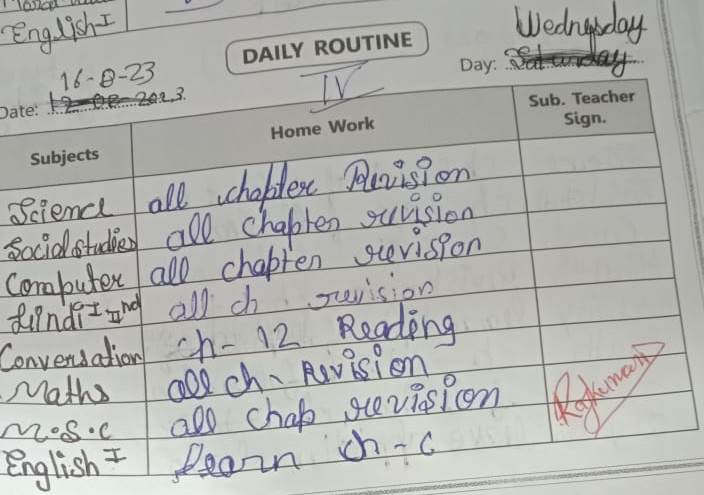 English-I
DAILY ROUTINE
Wednesday
Day: Saturday
16-8-23
Date: 12-08-2023
IV
Subjects Home Work Sub. Teacher Sign.
Science all chapter Revision
Social studies all chapter revision
Computer all chapter revision
Hindi I IInd all ch. revision
Conversation ch-12 Reading
Maths all ch- Revision
M.S.C all chap revision
English I Learn ch-c